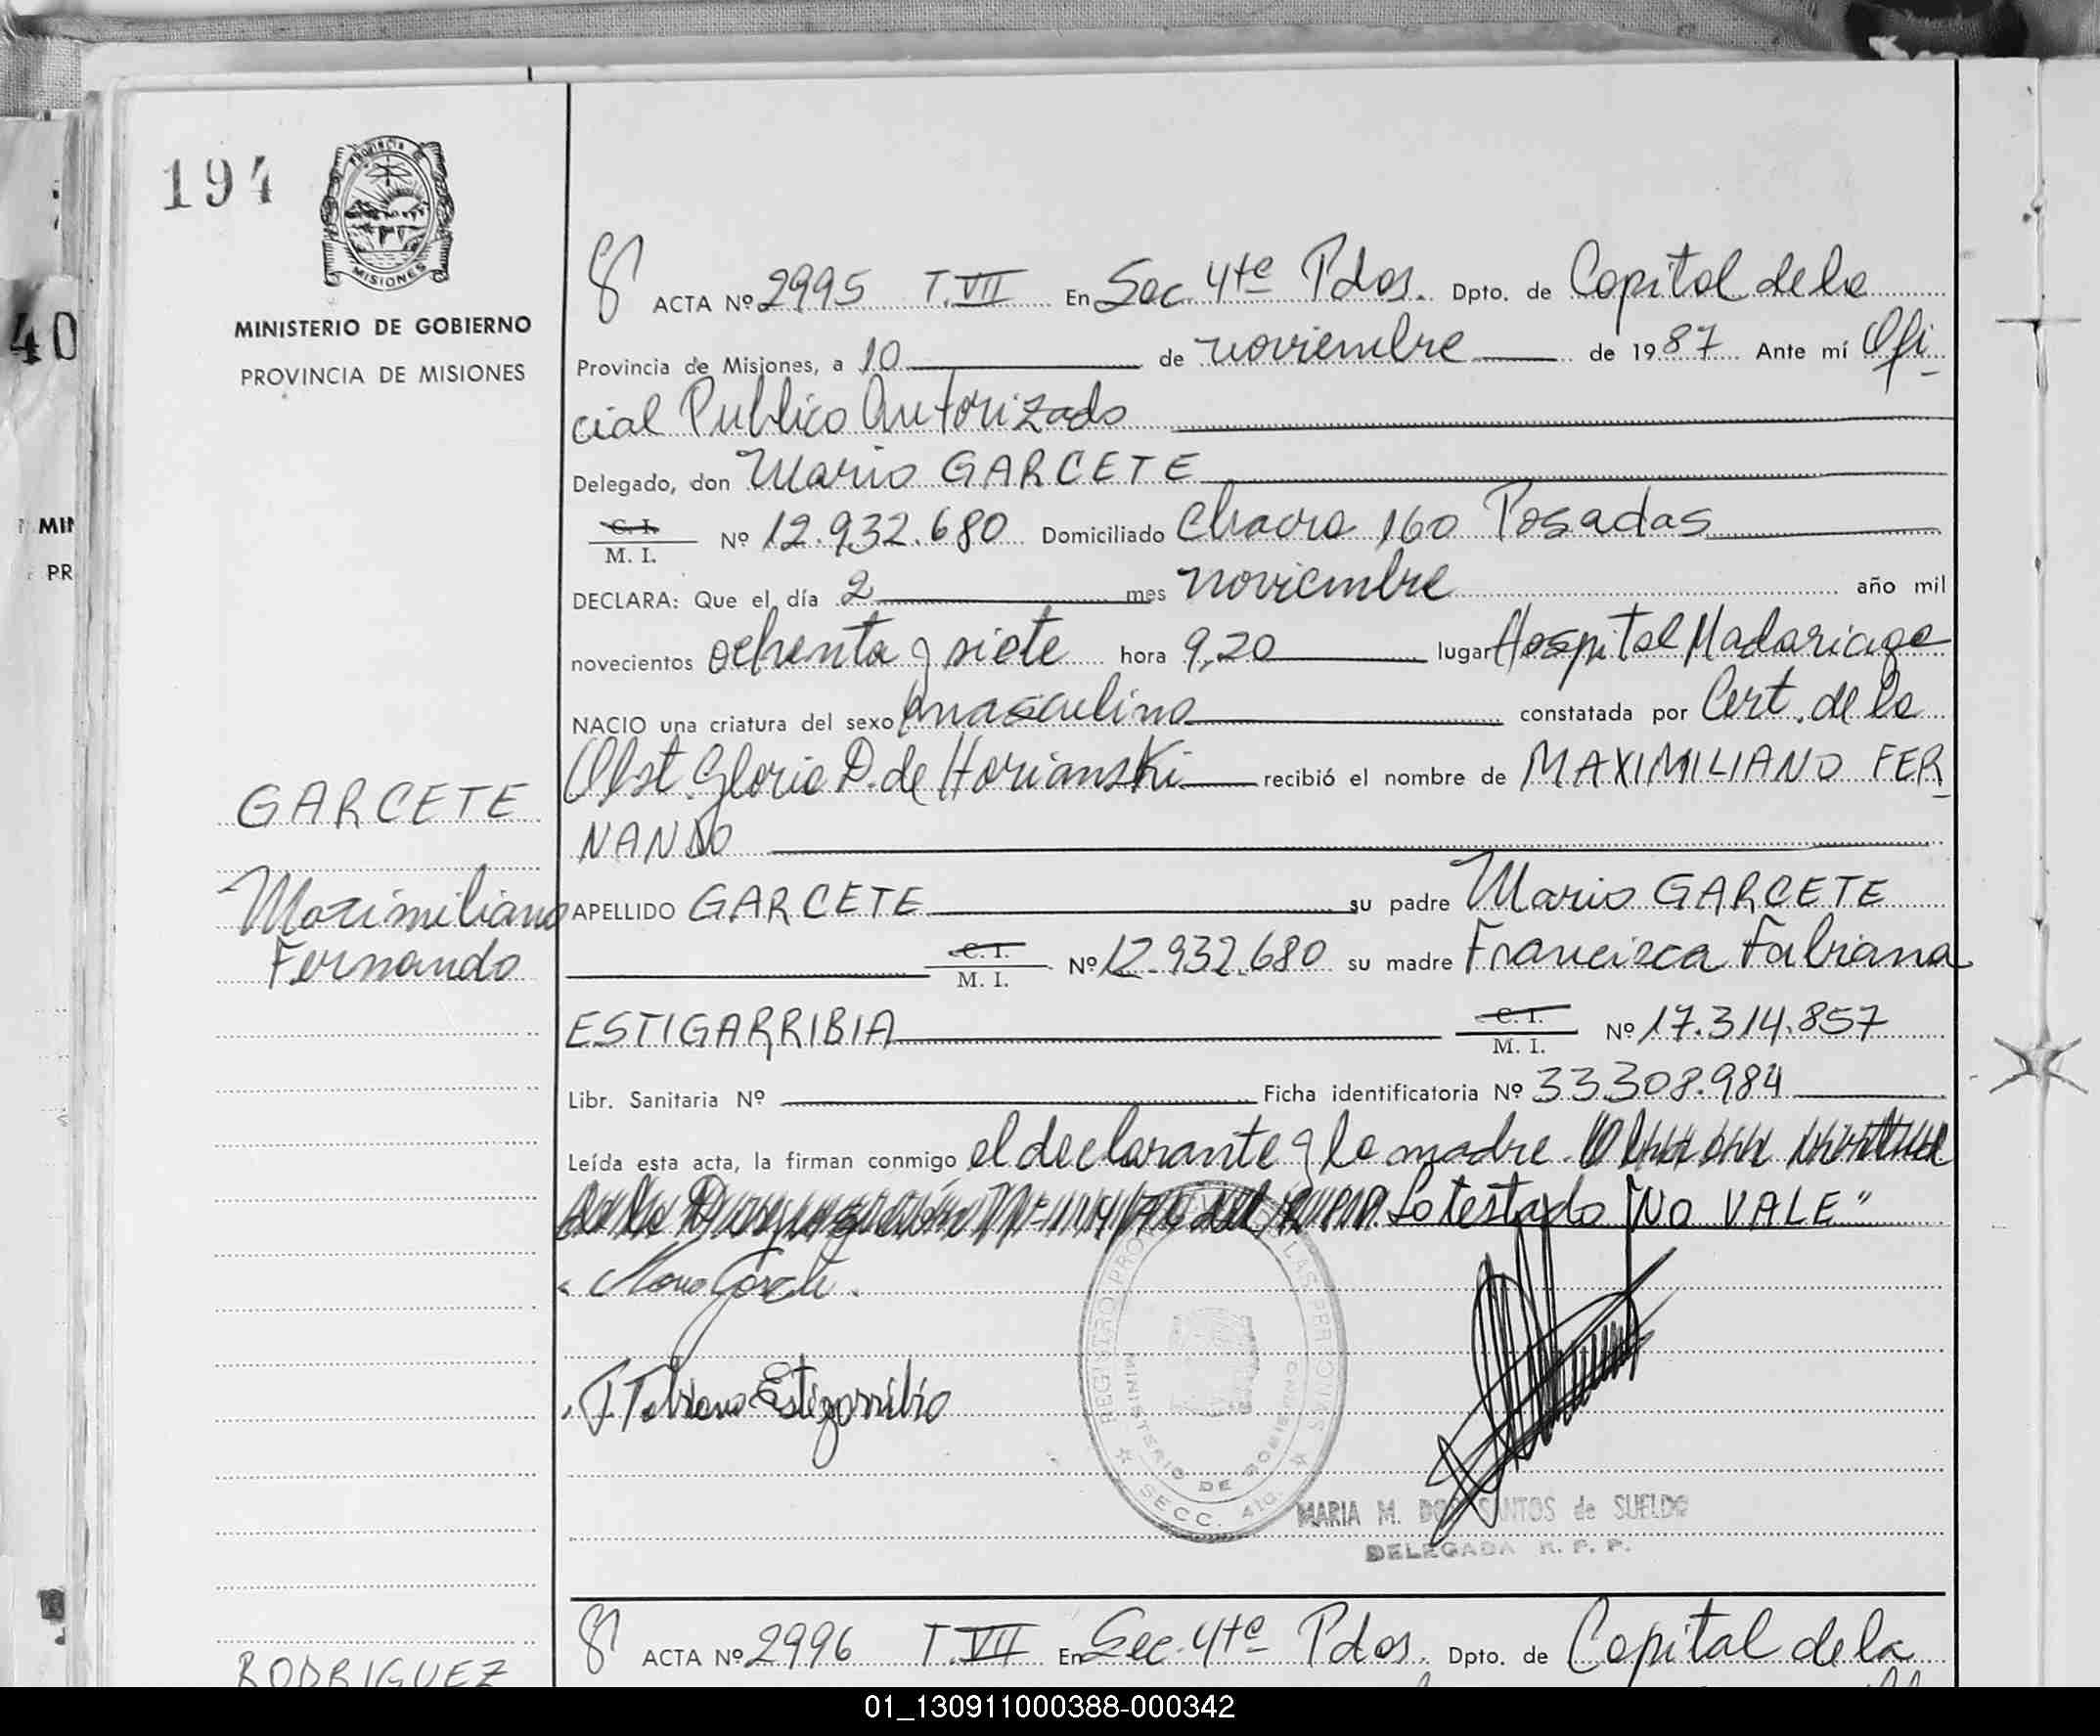 194
PROVINCIA DE
MISIONES
MINISTERIO DE GOBIERNO
PROVINCIA DE MISIONES
40
MIN
PR
GARCETE
Maximiliano
Fernando
RODRIGUEZ
ACTA Nº 2995 T. VII En Sec. 4ta Pdos. Dpto. de Capital de la
Provincia de Misiones, a 10 de noviembre de 1987 Ante mí Ofi-
cial Publico Autorizado
Delegado, don Mario GARCETE
C. I.
M. I. Nº 12.932.680 Domiciliado Chacra 160 Posadas
DECLARA: Que el día 2 mes noviembre año mil
novecientos ochenta y siete hora 9,20 lugar Hospital Madariaga
NACIO una criatura del sexo masculino constatada por Cert. de la
Obst. Gloria D. de Horianski recibió el nombre de MAXIMILIANO FER-
NANDO
APELLIDO GARCETE su padre Mario GARCETE
C. I.
M. I. Nº 12.932.680 su madre Francisca Fabiana
ESTIGARRIBIA C. I.
M. I. Nº 17.314.857
Libr. Sanitaria Nº Ficha identificatoria Nº 33.308.984
Leída esta acta, la firman conmigo el declarante y la madre.
Lo testado "NO VALE"
Mario Garcete
F. Fabiana Estigarribia
REGISTRO PROVINCIAL DE LAS PERSONAS
MINISTERIO DE GOBIERNO
SECC. 4ta.
MARIA M. DOS SANTOS de SUELDO
DELEGADA R. P. P.
ACTA Nº 2996 T. VII En Sec. 4ta Pdos. Dpto. de Capital de la
01_130911000388-000342